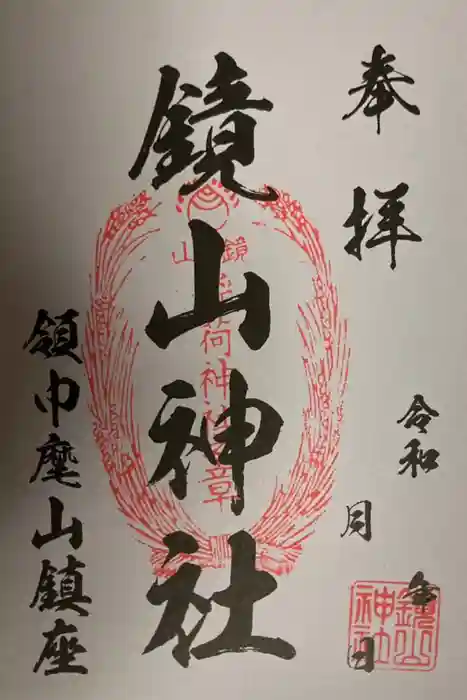 奉拝
令和 年 月 日
鏡山神社
領巾麾山鎮座
鏡山
稲荷神社之章
鏡山
神社